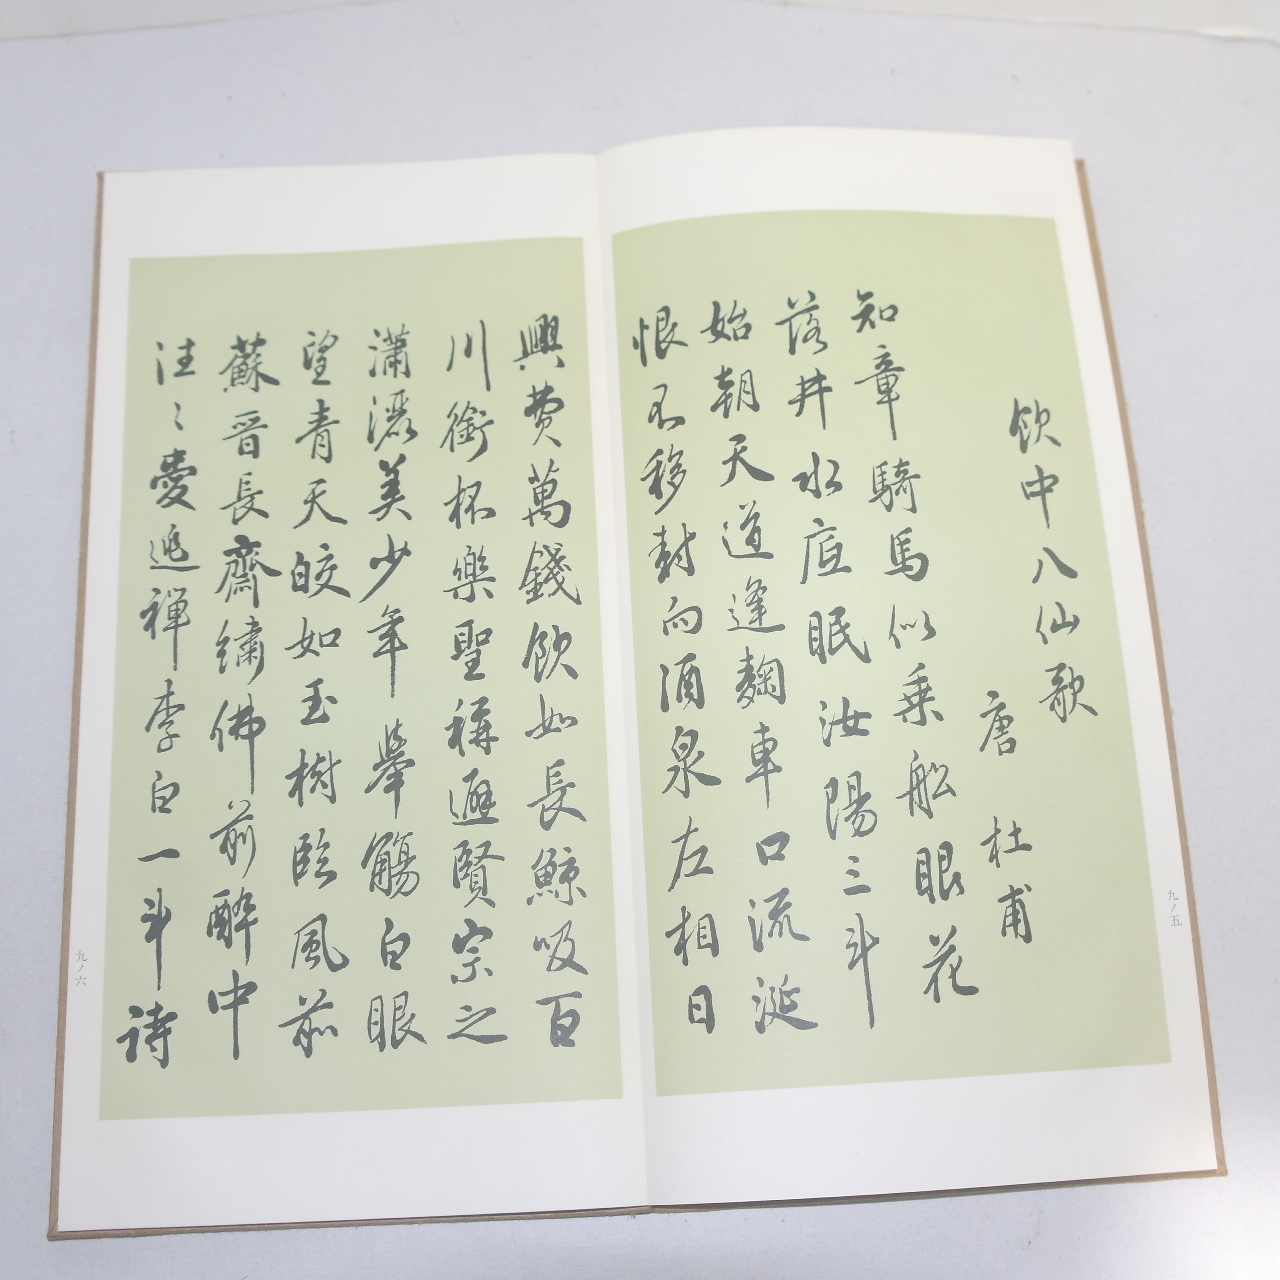 飲中八仙歌
唐 杜甫
知章騎馬似乗船眼花
落井水底眠汝陽三斗
始朝天道逢麴車口流涎
恨不移封向酒泉左相日
九ノ五
興費萬錢飲如長鯨吸百
川銜杯樂聖稱避賢宗之
瀟灑美少年舉觴白眼
望青天皎如玉樹臨風前
蘇晋長齋繡佛前醉中
往〻愛逃禪李白一斗詩
九ノ六